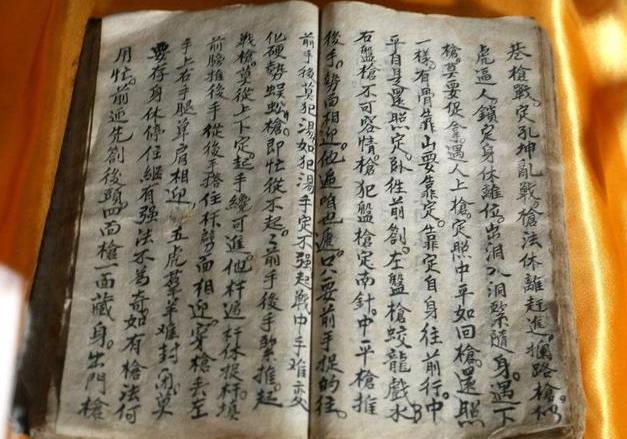 巷槍戰。定孔坤亂戰。槍法休離赶進。攔路槍似
虎逼人。鎖定身休離位。出洞入洞緊隨身。遇下
槍。要要促拿。遇人上槍。定照中平如回槍。還照
一樣。有骨靠山要靠定。靠定自身往前行。中
平自具還照定。卧徃前劄。左盤槍蛟龍戲水
右盤槍不可容情。槍犯盤槍定南針。中平槍推
後手。勢面相迎。他逼咱也逼。只要前手捉的徃。
前手後莫犯湯。如犯湯手定不强。起戰中手难变
化硬勢蜈蚣槍。即忙從不起。前手後手緊推。起
戰槍草從上下定。起手纔可進。他杆過杆休捉杆。填
前膀推後手。從後手搭住杆。勢面相迎。穿槍去左
手上右手腿草肩相迎。五虎羣羊难封閉。莫
要存身休停住。縱有强法不為奇。如有槍法何
用忙。前迎先劄後頭。四面槍一面藏身。出門槍